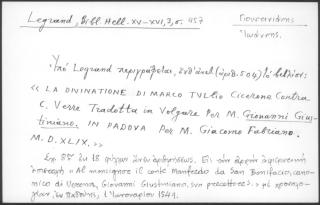 Legrand, Bibl. Hell. XV-XVI, 3, σ. 457
Ἰουστινιάνης
Ἰωάννης.
Ὑπὸ Legrand περιγράφεται, (ἀριθ. 504) τὸ βιβλίον:
« LA DIVINATIONE DI MARCO TULLIO Cicerone Contra
C. Verre Tradotta in Volgare Per M. Giovanni Giu-
stiniano. IN PADOVA Per M. Giacomo Fabriano.
M.D.XLIX. »
Σχ. 8ον ἐκ 18 φύλλων ἄνευ ἀριθμήσεως. Εἰς τὴν ἀρχὴν ἀφιερωτικὴ
ἐπιστολὴ « Al monsignor il conte Manfredo da San Bonifacio, cano-
nico di Verona, Giovanni Giustiniano, suo precettore » μὲ χρονολο-
γίαν, ἐν Παδούῃ, 1 Ἰανουαρίου 1549.